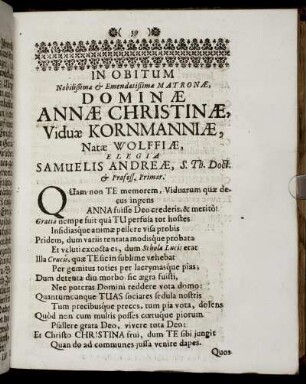 )( 39 )(
IN OBITUM
Nobilissimæ & Emendatissimæ MATRONÆ,
DOMINÆ
ANNÆ CHRISTINÆ,
Viduæ KORNMANNIÆ,
Natæ WOLFFIÆ,
ELEGIA
SAMUELIS ANDREÆ, S. Th. Doct.
& Profess. Primar.
QUam non TE memorem, Viduarum quæ decus ingens
ANNA fuisse Deo crederis: & meritò:
Gratia nempe fuit quâ TU perfusa tot hostes
Insidiasque animæ pellere visa probis
Pridem, dum variis tentata modisque probata
Et veluti excocta es, dum Schola Lucis erat
Illa Crucis, quæ TE sic in sublime vehebat
Per gemitus toties per lacrymasque pias;
Dum detenta diu morbo sic ægra fuisti,
Nec poteras Domini reddere vota domo:
Quantumcunque TUAS sociares sedula nostris
Tum precibusque preces, tum pia vota, dolens
Quòd non cum multis posses cœtuque piorum
Psallere grata Deo, vivere tota Deo:
Et Christo CHRISTINA frui, dum TE sibi jungit
Quando ad communes jussa venire dapes.
Quos